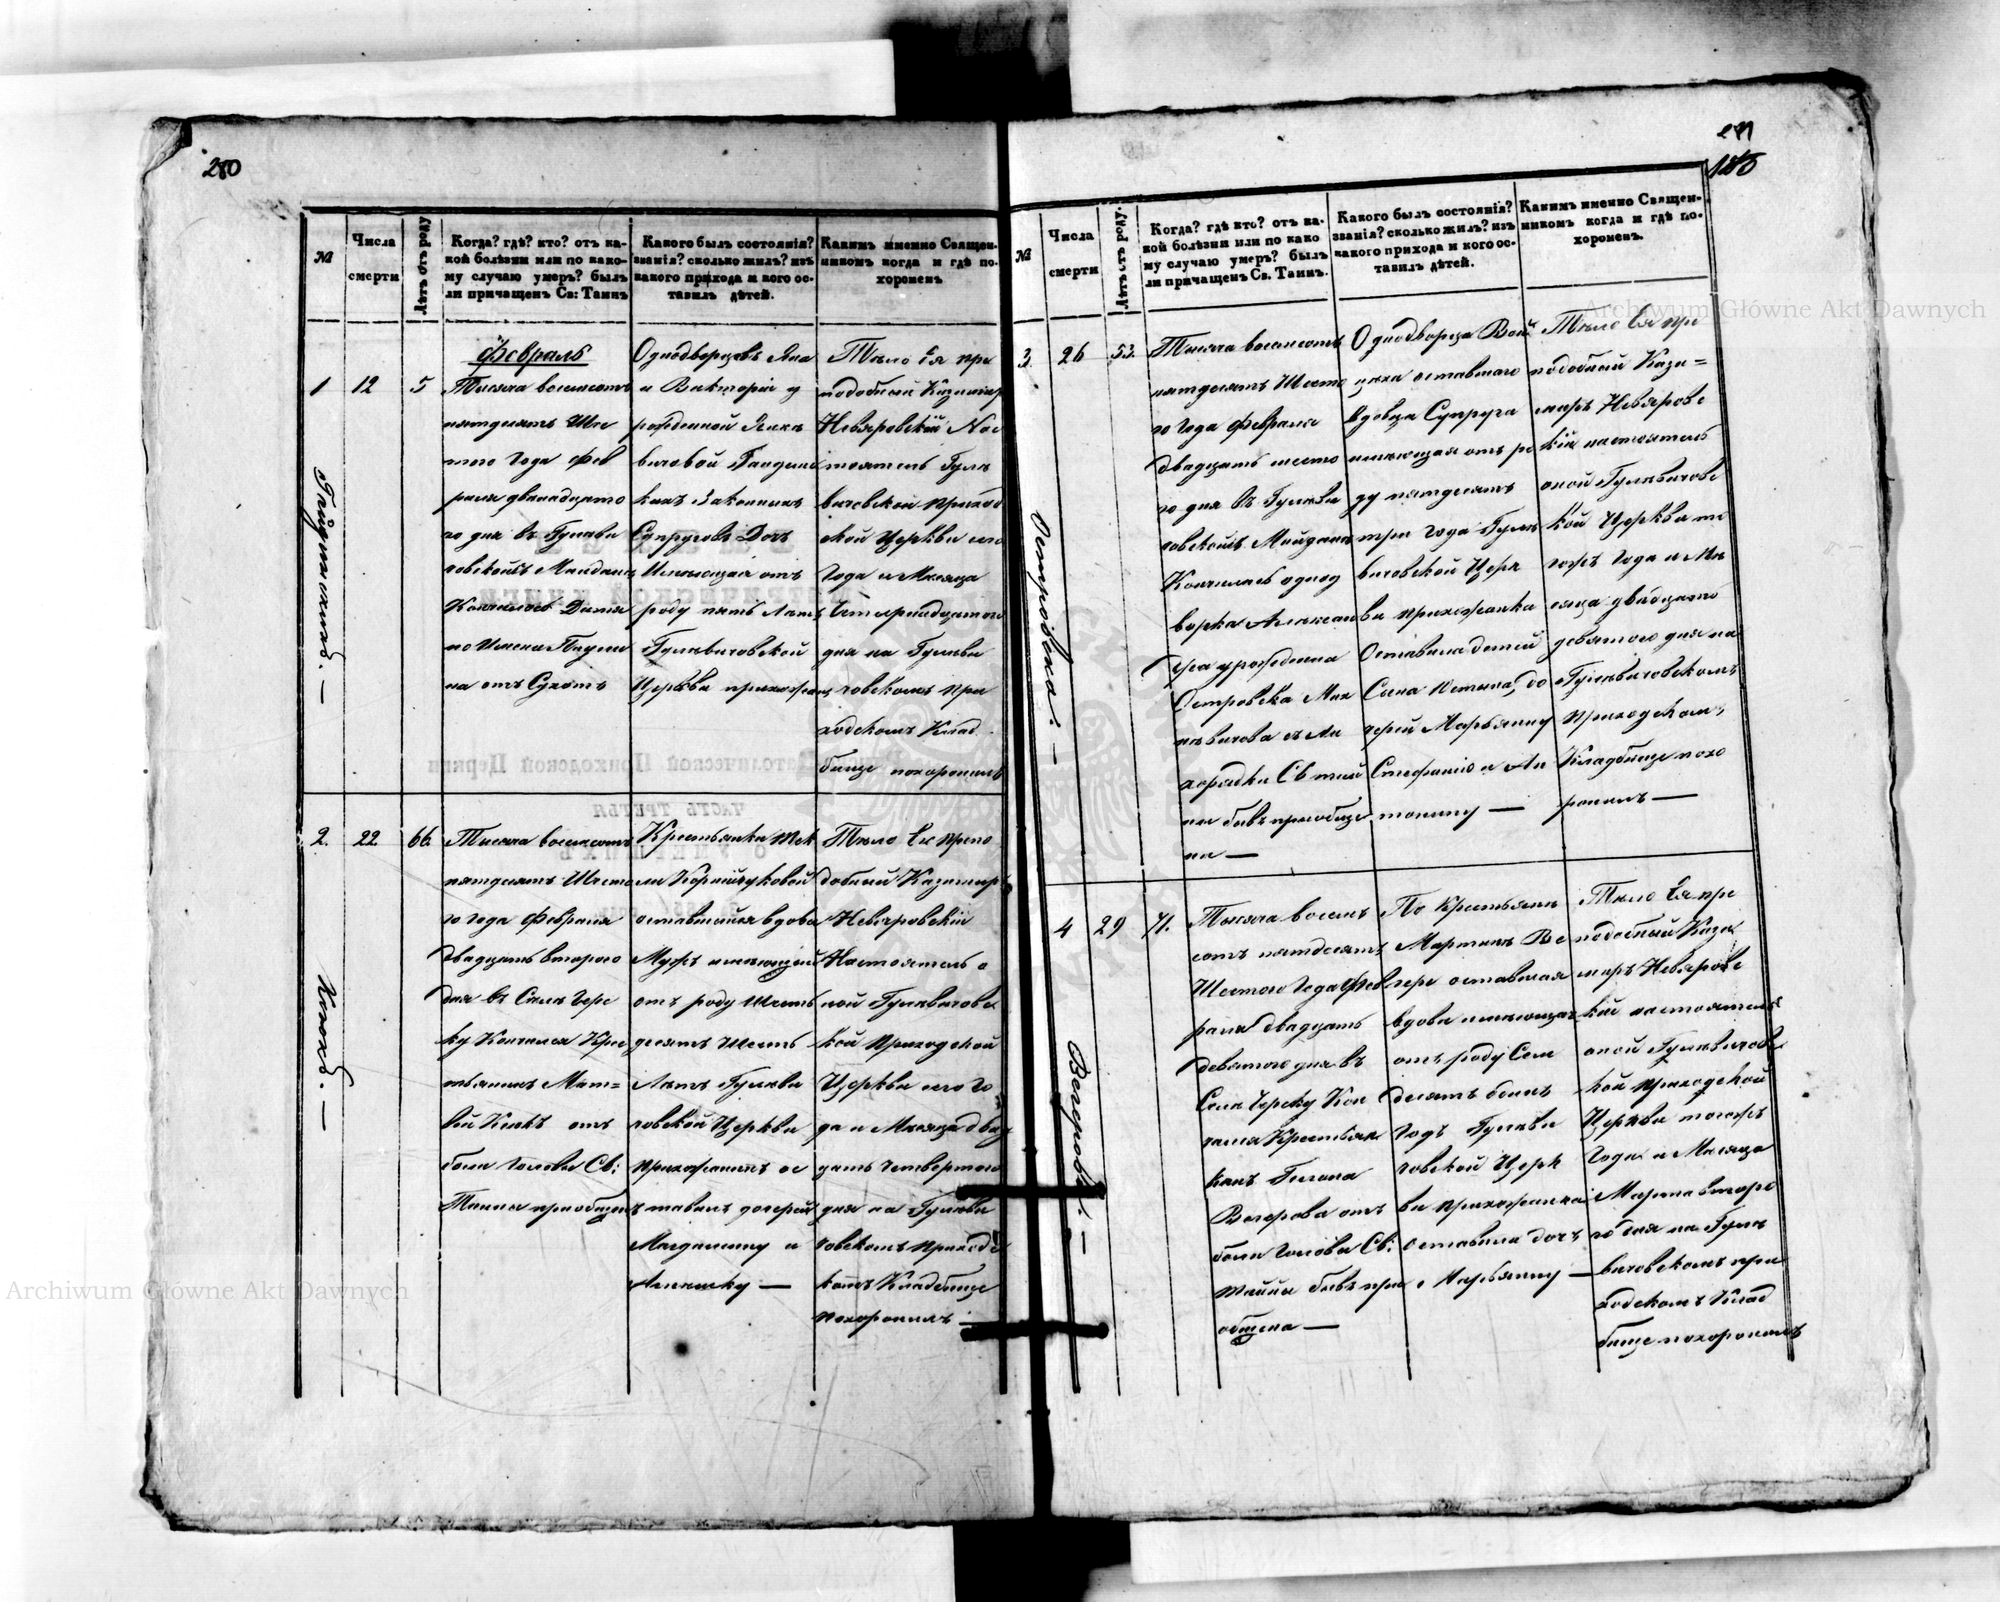 280
№
Числа
смерти
Лѣтъ отъ роду
Когда? гдѣ? кто? отъ ка-
кой болѣзни или по како-
му случаю умеръ? былъ
ли причащенъ Св: Таинъ
Какого былъ состоянія?
званія? сколько жилъ? изъ
какого прихода и кого ос-
тавилъ дѣтей.
Какимъ именно Священ-
никомъ когда и гдѣ по-
хороненъ
1
12
5
Февраль
Тысяча восемсотъ
пятдесятъ Шес
того года Фев
раля двенадцато
го дня въ Гульви
човской Майдань
Кончилось Дитя
по имени Паули
на отъ Сухотъ
Однодворцевъ Яна
и Викторіи у
рожденной
вичовой
кихъ Законныхъ
Супруговъ Дочь
Имеющая отъ
роду пять Летъ
Гульвичовской
Церкви прихожан
Тѣло Ея пре
подобный Казимир
Невяровскій Нас
тоятель Гуль
вичовской приход
ской Церкви сего
Года и Месяца
Четырнадцатого
дня на Гульви
човскомъ при
ходскомъ Клад
бище похоронилъ
2.
22
66.
Клюкъ. —
Тысяча восемсотъ
пятдесятъ Шесто
го года Февраля
двадцать второго
дня въ Селе Чере
ку Кончился Крес
тьянинъ Мат=
вій Клюкъ отъ
боли Головы Св:
Тайны приобщен
Крестьянки Тек
ли Корнійчуковой
оставшейся вдовы
Мужъ имеющій
отъ роду Шесть
десятъ Шесть
Летъ Гульви
човской Церкви
прихожанинъ ос
тавилъ дочерей
Магдалину и
—
Тѣло Ея препо
добный Казимиръ
Невяровскій
Настоятель о
ной Гульвичовс
кой приходской
Церкви сего Го
да и Месяца двад
цать четвертого
дня на Гульви
човскомъ приходс
комъ Кладбище
похоронилъ —
№
Числа
смерти
Лѣтъ отъ роду.
Когда? гдѣ кто? отъ ка-
кой болѣзни или по како
му случаю умеръ? былъ
ли причащенъ Св. Таинъ.
Какого былъ состоянія?
званія? сколько жилъ? изъ
какого прихода и кого ос-
тавилъ дѣтей.
Какимъ именно Священ-
никомъ когда и гдѣ по-
хороненъ.
3.
26
53.
Тысяча восемсотъ
пятдесятъ Шесто
го Года Февраля
двадцать шесто
го дня въ Гульви
човской Майдань
Кончилась однод
ворка Алексан
дра урожденна
Островска
съ Ли
хорадки Св тай
ны бывъ приобще
на —
Однодворца Вой
цеха оставшого
вдовца Супруга
имеющая отъ ро
ду пятдесятъ
три года Гуль
вичовской Церк
ви прихожанка
Оставила детей
Сына до
черей Марьянну
Стефанію и Ан
тонину —
Тѣло Ея пре
подобный Кази=
миръ Невяровс
кій настоятель
оной Гульвичовс
кой Церкви то
гожъ Года и Ме
сяца двадцато
девятого дня на
Гульвичовскомъ
приходскомъ
Кладбище похо
ронилъ —
4
29
71.
Вегерова. —
Тысяча восем
сотъ пятдесятъ
Шестого Года Фев
раля двадцать
девятого дня въ
Селе Череку Кон
чалась Крестьян
ка
Вегерова отъ
боли Головы Св:
тайны бывъ при
общена —
По Крестьянинъ
Мартинъ Ве
гере оставшая
вдова имеющая
отъ роду Сем
десятъ одинъ
годъ Гульви
човской Церк
ви прихожанка
оставила дочь
Марьянну —
Тѣло Ея пре
подобный Кази
миръ Невяровс
кій настоятель
оной Гульвичовс
кой приходской
Церкви тогожъ
Года и Месяца
Марта второ
го дня на Гуль
вичовскомъ при
ходскомъ Клад
бище похоронилъ
Archiwum Główne Akt Dawnych
Archiwum Główne Akt Dawnych